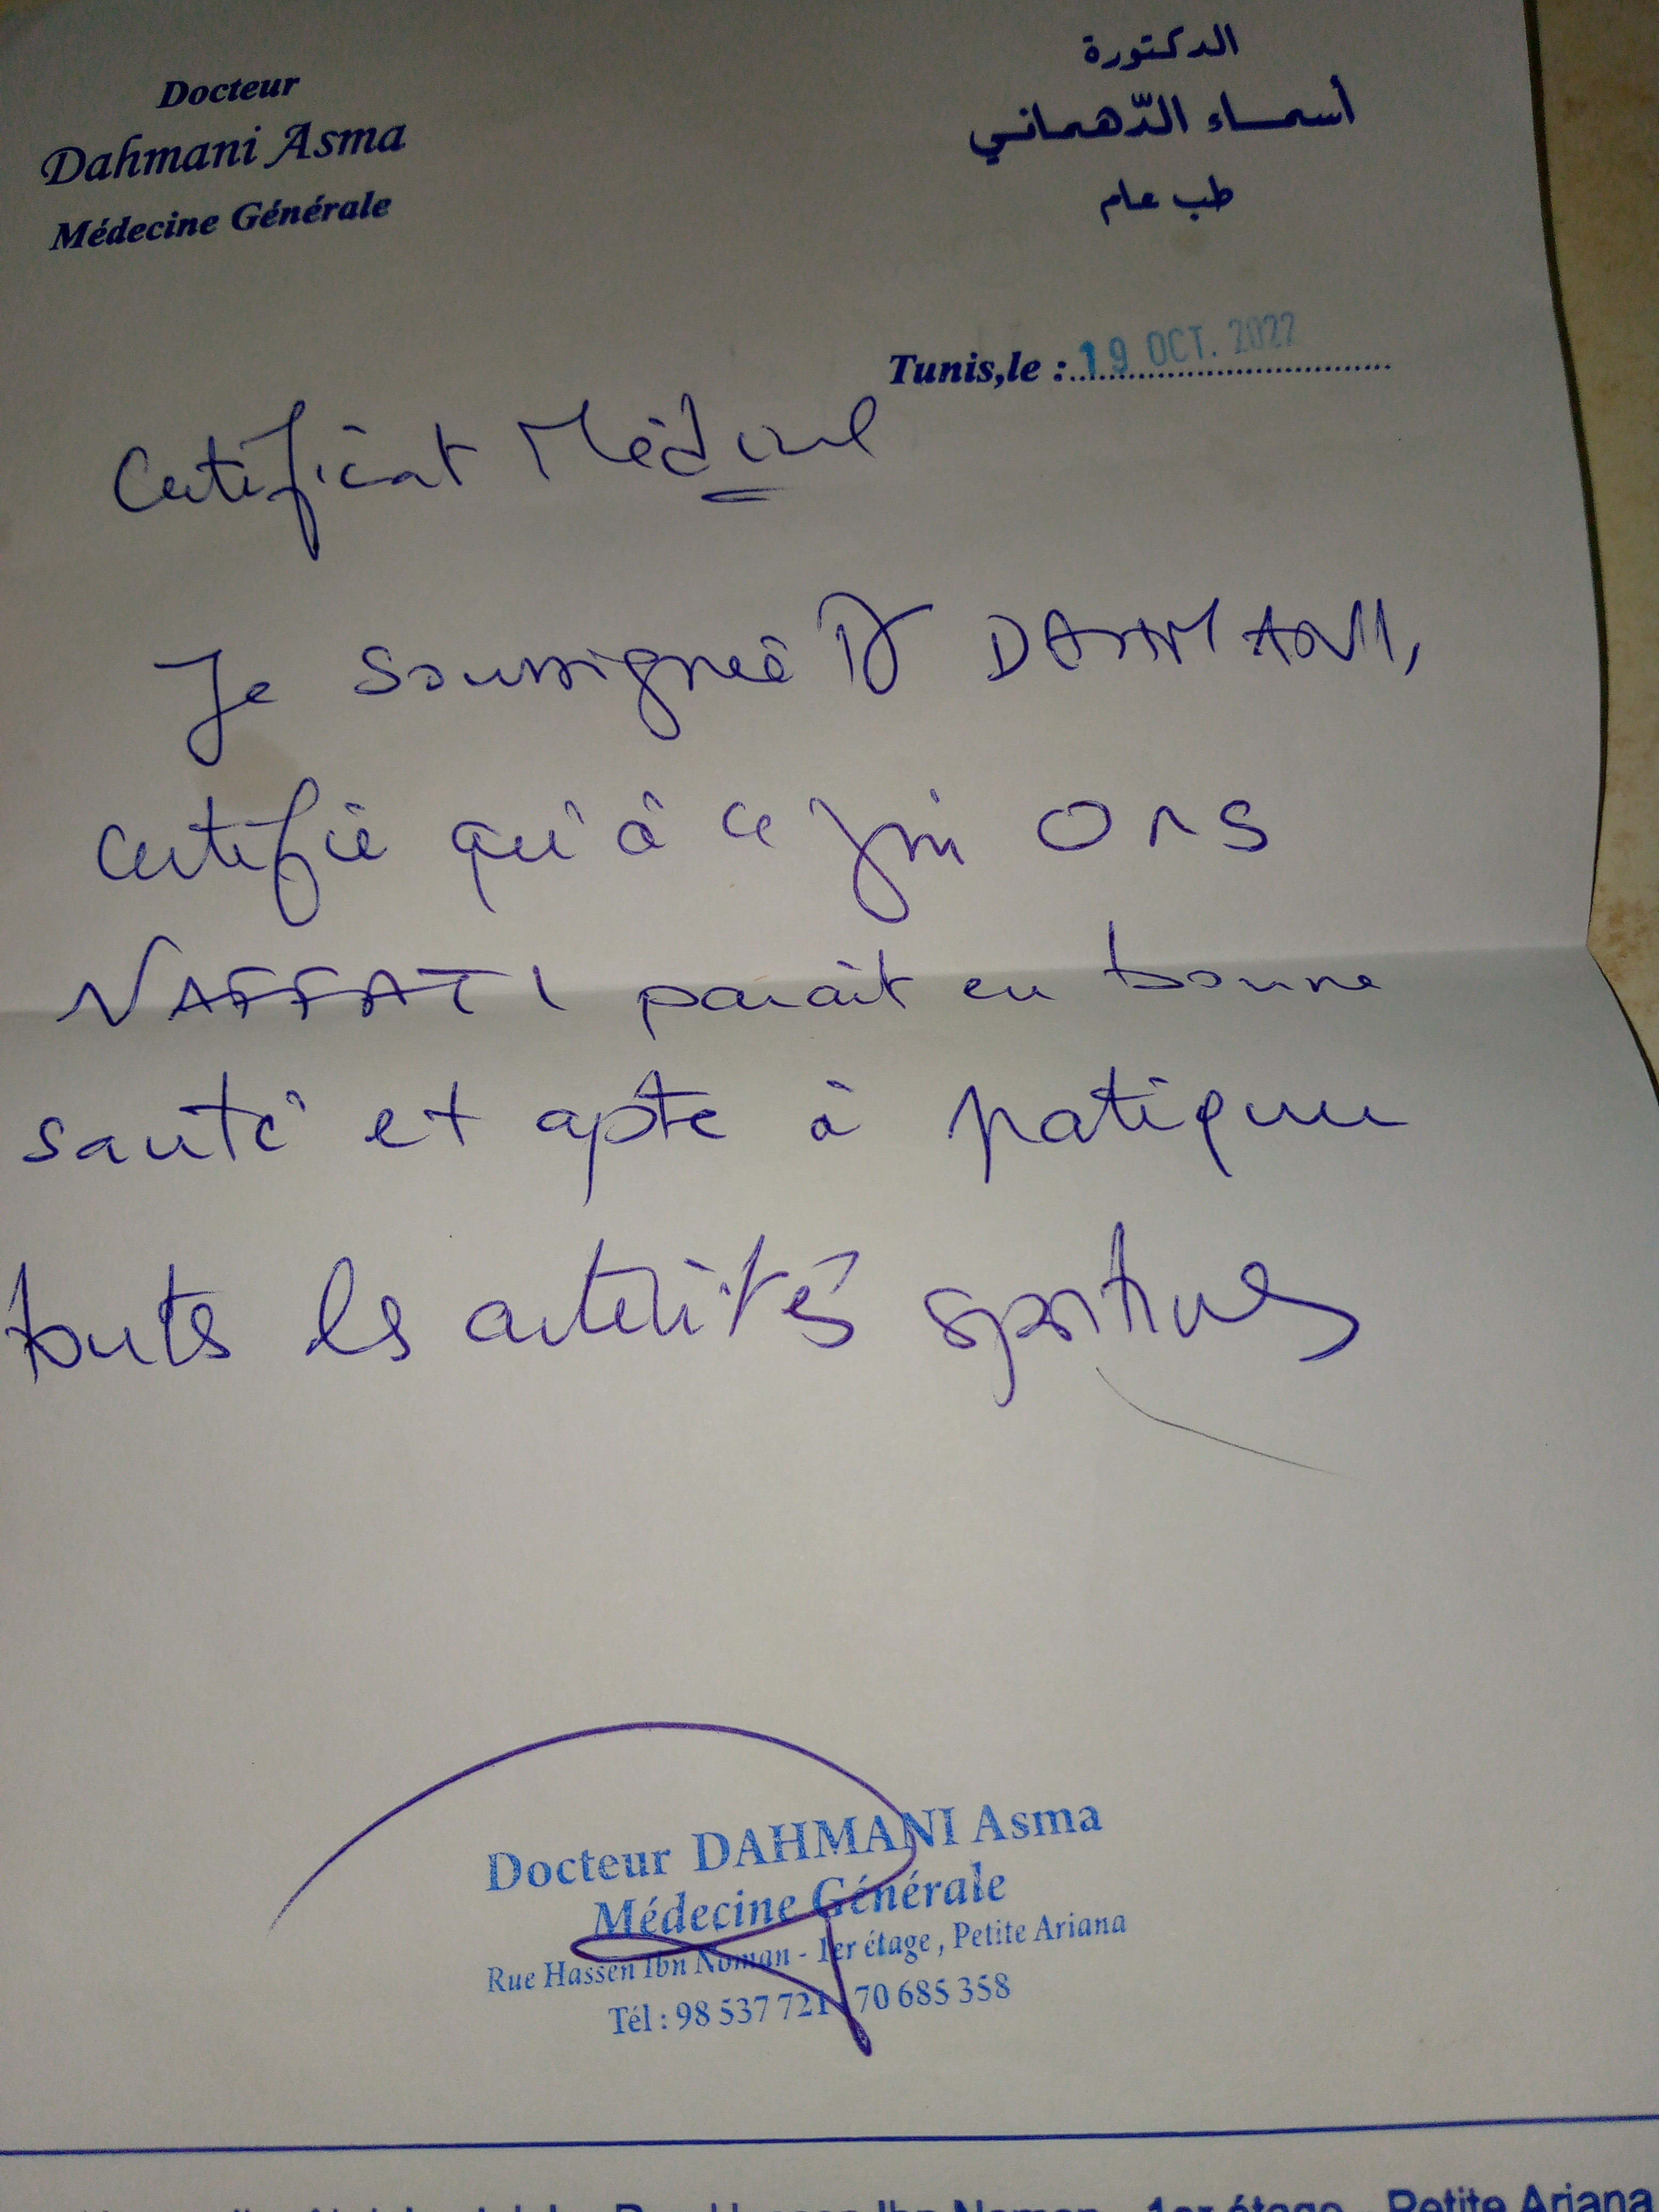 Docteur
Dahmani Asma
Médecine Générale
الدكتورة
أسماء الدّهماني
طب عام
Tunis,le : 19 OCT. 2022
Certificat Médical
Je soussignée Dr DAHMANI,
certifie qu'à ce jour Ons
NAFFATI parait en bonne
santé et apte à pratiquer
toutes les activités sportives
Docteur DAHMANI Asma
Médecine Générale
Rue Hassen Ibn Noman - 1er étage , Petite Ariana
Tél : 98 537 721 70 685 358
Rue Hassen Ibn Noman - 1er étage - Petite Ariana